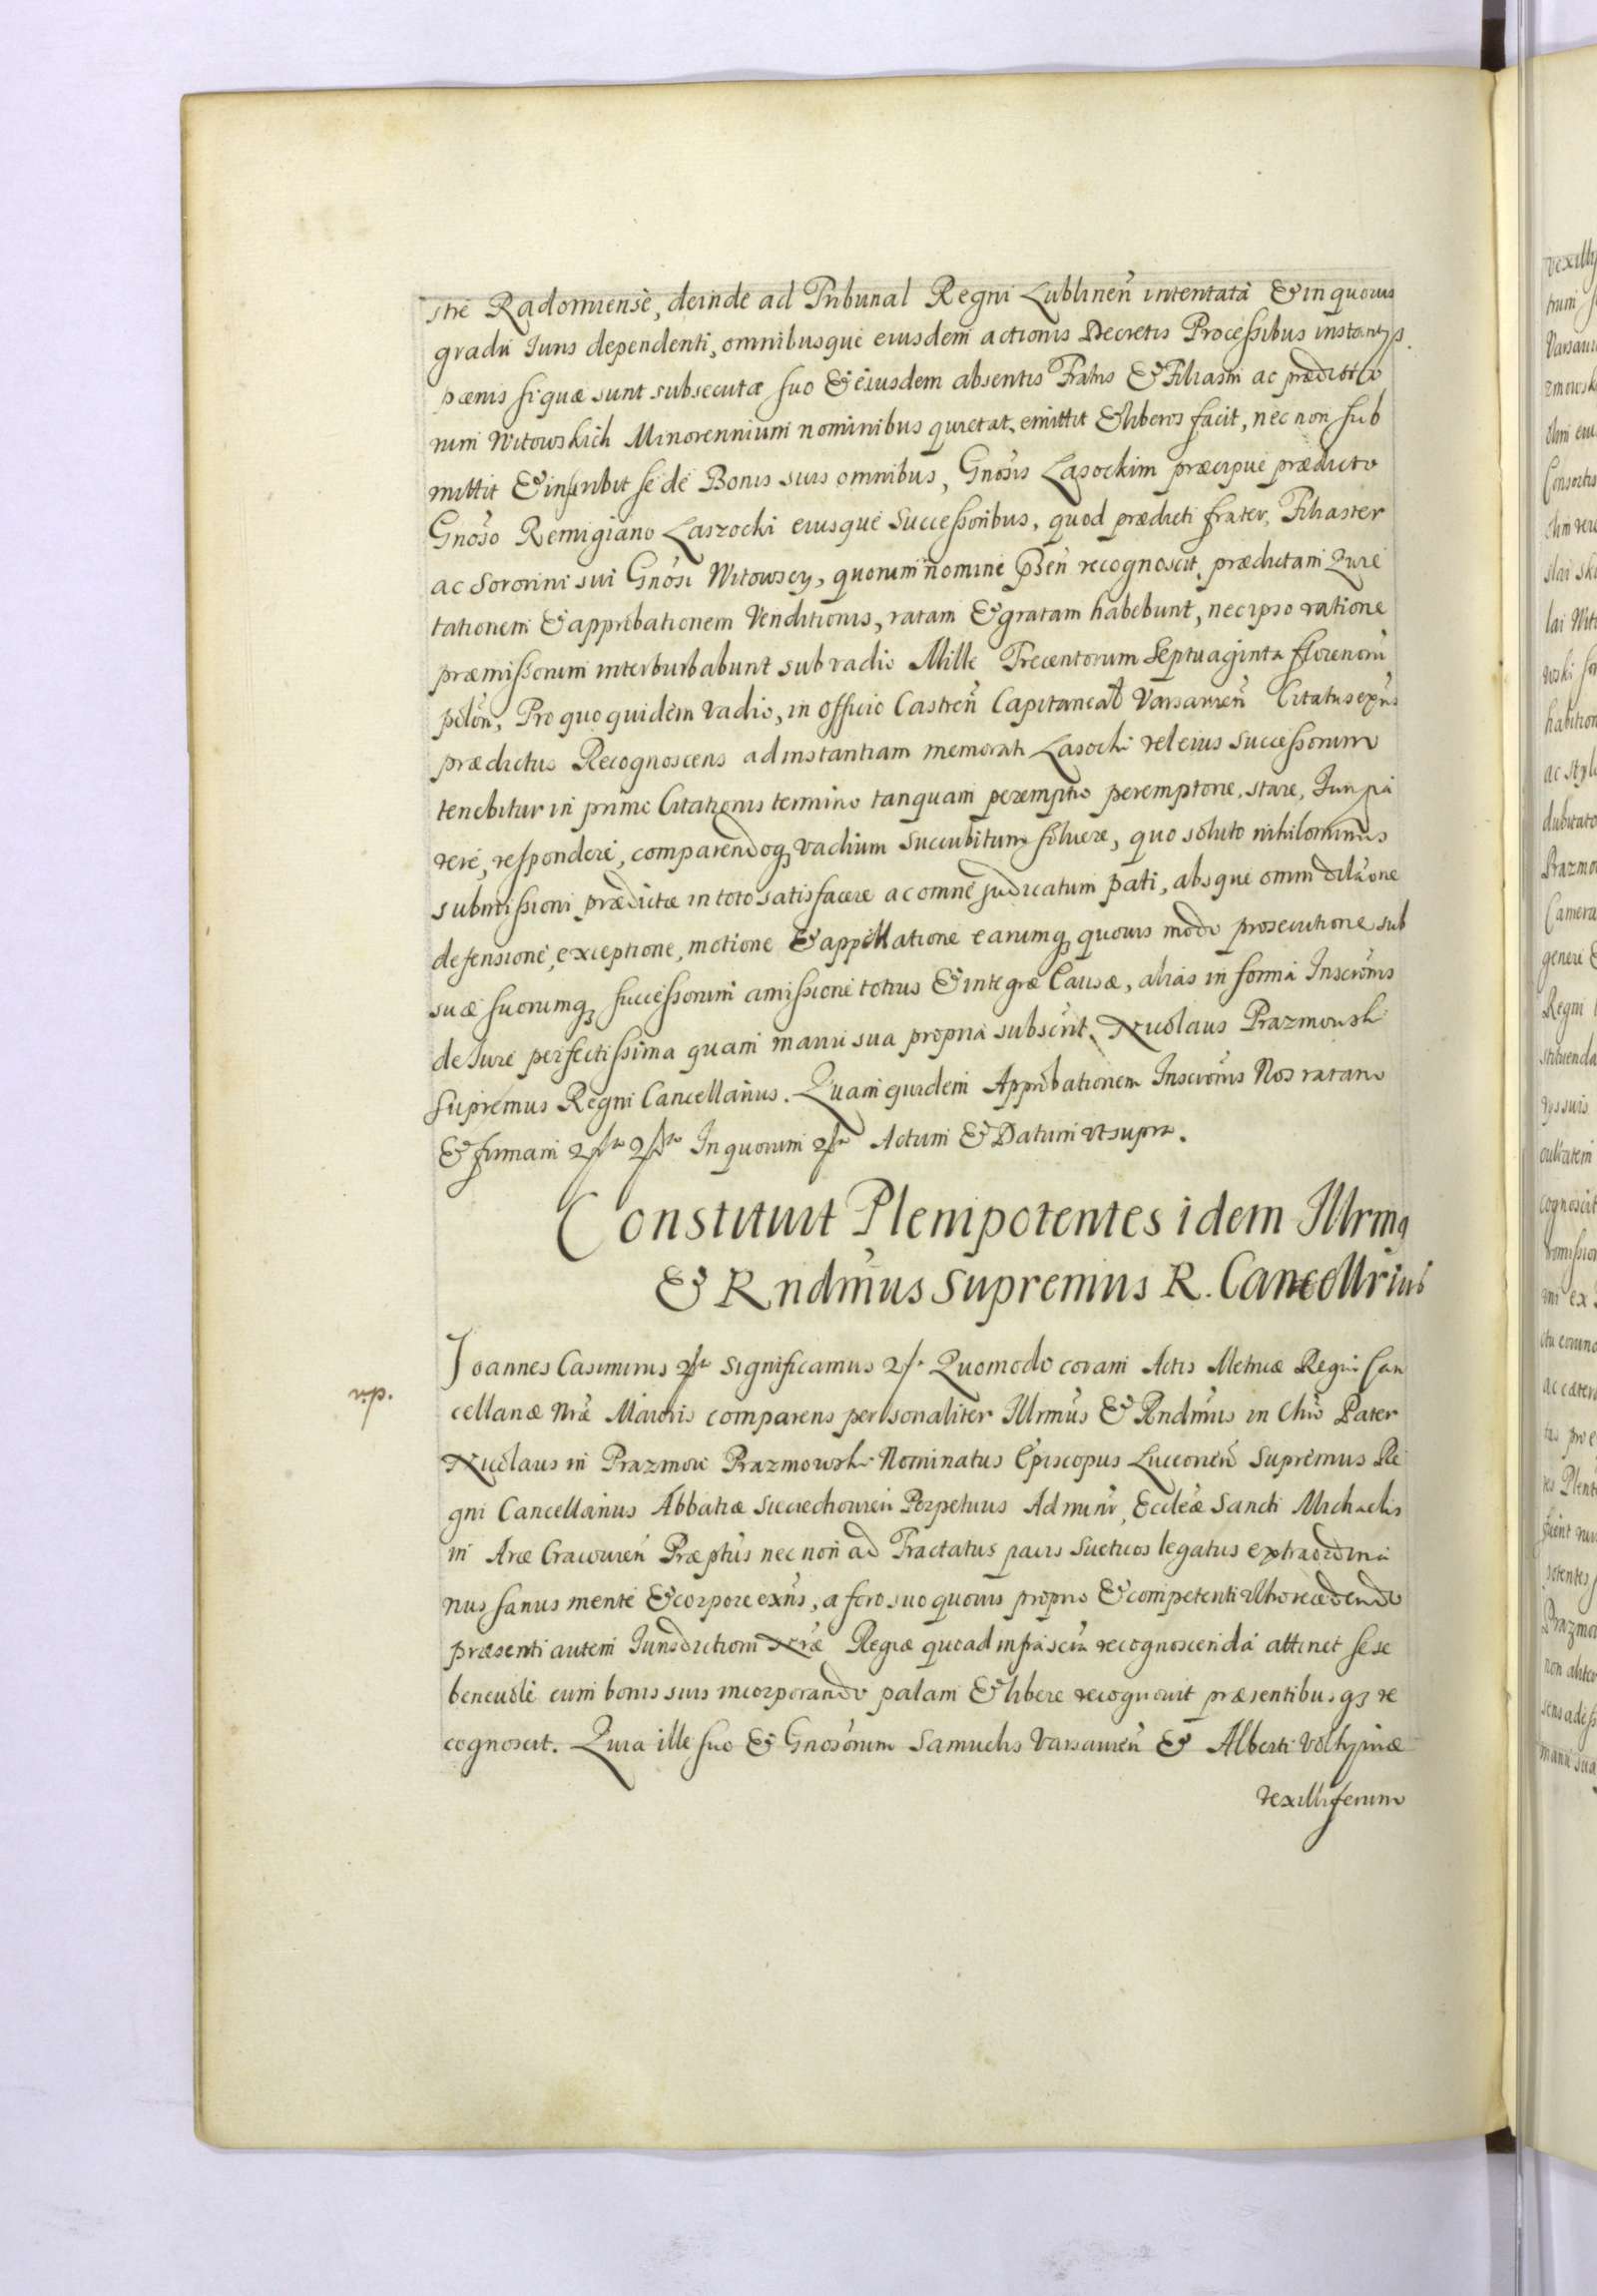 stre Radomiense, deinde ad Tribunal Regni Lublinen intentata & in quovis
gradu Juris dependenti, omnibusque eiusdem actionis Decretis Processibus instantijs
pœnis si quæ sunt subsecutæ suo & eiusdem absentis Fratris & Filiastri ac prædicto
rum Witowskich Minorennium nominibus quietat, emittit & liberos facit, nec non sub
mittit & inscribit se de Bonis suis omnibus, Gnosis Lasockim præcipue prædicto
Gnoso Remigiano Laszocki eiusque Successoribus, quod prædicti frater, Filiaster
ac Sororini sui Gnosi Witowscy, quorum nomine psen recognoscit, prædictam Quie
tationem & approbationem Venditionis, ratam & gratam habebunt, nec ipso ratione
præmissorum interturbabunt sub vadio Mille Trecentorum Septuaginta florenorū
polon, Pro quo quidem vadio, in officio Castren Capitaneat Varsavien Citatus exns
prædictus Recognoscens ad instantiam memorati Lasocki vel eius successorum
tenebitur in primo Citationis termino tanquam perempto peremptorie, stare, Jun pa
rere, respondere, comparendoq vadium succubitum solvere, quo soluto nihilominus
submissioni prædictæ in toto satisfacere ac omne judicatum pati, absque omni dilāone
defensione, exceptione, motione & appellatione earumq quovis modo prosecutione sub
suæ suorumq successorum amissione totius & integræ Causæ, alias in forma Inscronis
de Jure perfectissima quam manu sua propria subscrit. Nicolaus Prazmowski
Supremus Regni Cancellarius. Quam quidem Approbationem Inscronis Nos ratam
& firmam 2ſtr 2ſtr In quorum 2ſtr Actum & Datum Ut supra.
Constituit Plenipotentes idem Illrmq
& Rndmus Supremus R. Cancellrius
vip.
Joannes Casimirus 2ſtr Significamus 2ſtr Quomodo coram Actis Metricæ Regni Can
cellariæ Nræ Maioris comparens personaliter Illrmus & Rndmus in Chro Pater
Nicolaus in Prazmow Prazmowski Nominatus Episcopus Luceorien Supremus Re
gni Cancellarius Abbatiæ Sieciechovien Perpetuus Adminr, Eccleæ Sancti Michaelis
in Arce Cracovien Præptus nec non ad Tractatus pacis Suetuos legatus extraordina
rius sanus mente & corpore exns, a foro suo quovis proprio & competenti ultro recedendo
præsenti autem Jurisdictioni Nræ Regiæ quoad infrascra recognoscenda attinet sese
benevole cum bonis suis incorporando palam & libere recognovit præsentibusq re
cognoscit. Quia ille suo & Gnosorum Samuelis Varsavien & Alberti Volhyniæ
vexilliferum